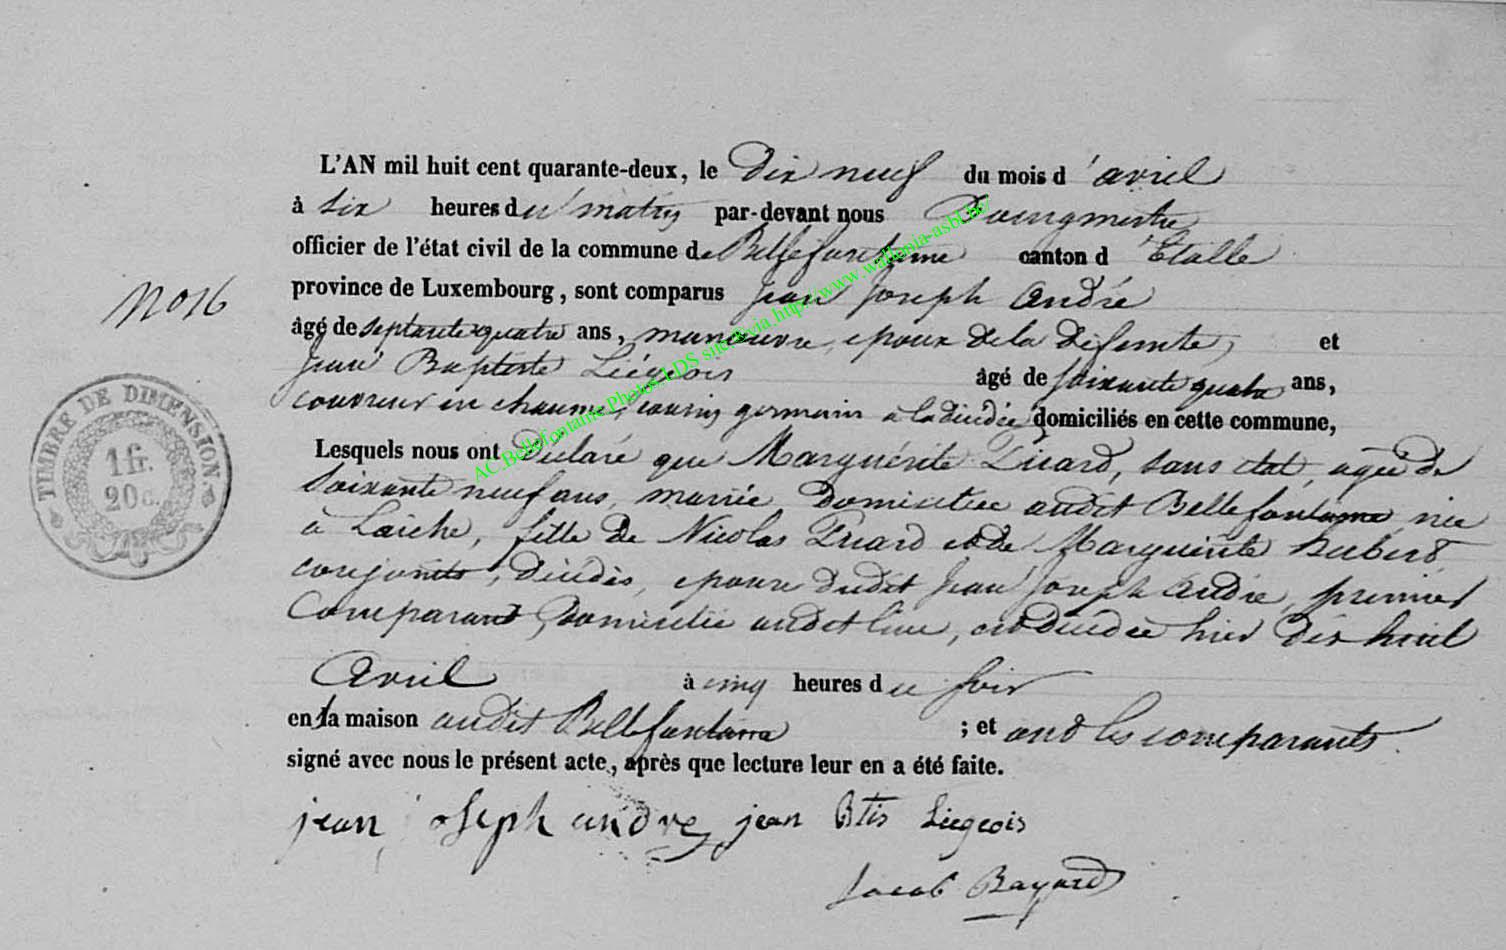 L'AN mil huit cent quarante-deux, le dix neuf du mois d'avril
à six heures du matin par-devant nous Bourgmestre
officier de l'état civil de la commune de Bellefontaine canton d'Etalle
province de Luxembourg, sont comparus Jean Joseph André
No 16
âgé de septante quatre ans, manœuvre, epoux de la défunte, et
Jean Baptiste Liégeois âgé de soixante quatre ans,
couvreur en chaume, cousin germain à la décédée domiciliés en cette commune,
Lesquels nous ont déclaré que Marguerite, sans etat, agée de
soixante neuf ans, mariée domiciliée audit Bellefontaine, née
à Laiche, fille de Nicolas et de Marguerite Hubert,
conjoints, décédés, epouse dudit Jean Joseph André, premier
comparant, domiciliée audit lieu, est décédée hier dix huit
Avril à cinq heures du soir
en sa maison audit Bellefontaine ; et ont les comparants
signé avec nous le présent acte, après que lecture leur en a été faite.
jean joseph andre jean Btis Liegeois
Jacob Bayard
TIMBRE DE DIMENSION.
1 fr.
20 c.
AC.Bellefontaine.Photos.LDS site via http://www.wallonia-asbl.be/